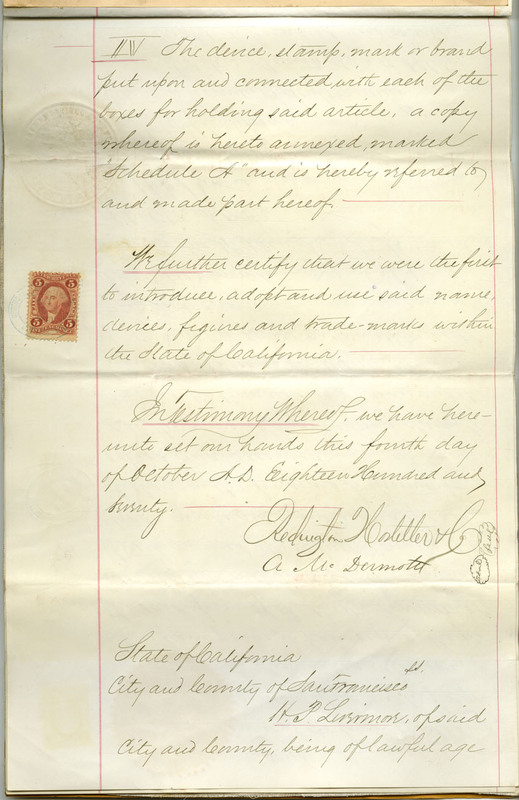 IV The device, stamp, mark or brand
put upon and connected with each of the
boxes for holding said article, a copy
whereof is hereto annexed, marked
"Schedule A" and is hereby referred to
and made part hereof.
We further certify that we were the first
to introduce, adopt and use said name,
devices, figures and trade-marks within
the State of California.
5 5
In Testimony Whereof, we have here-
unto set our hands this fourth day
of October A.D. Eighteen Hundred and
Seventy.
Redington Hostetter & Co
A. McDermott
State of California
City and County of San Francisco ss.
H. P. Livermore, of said
City and County, being of lawful age